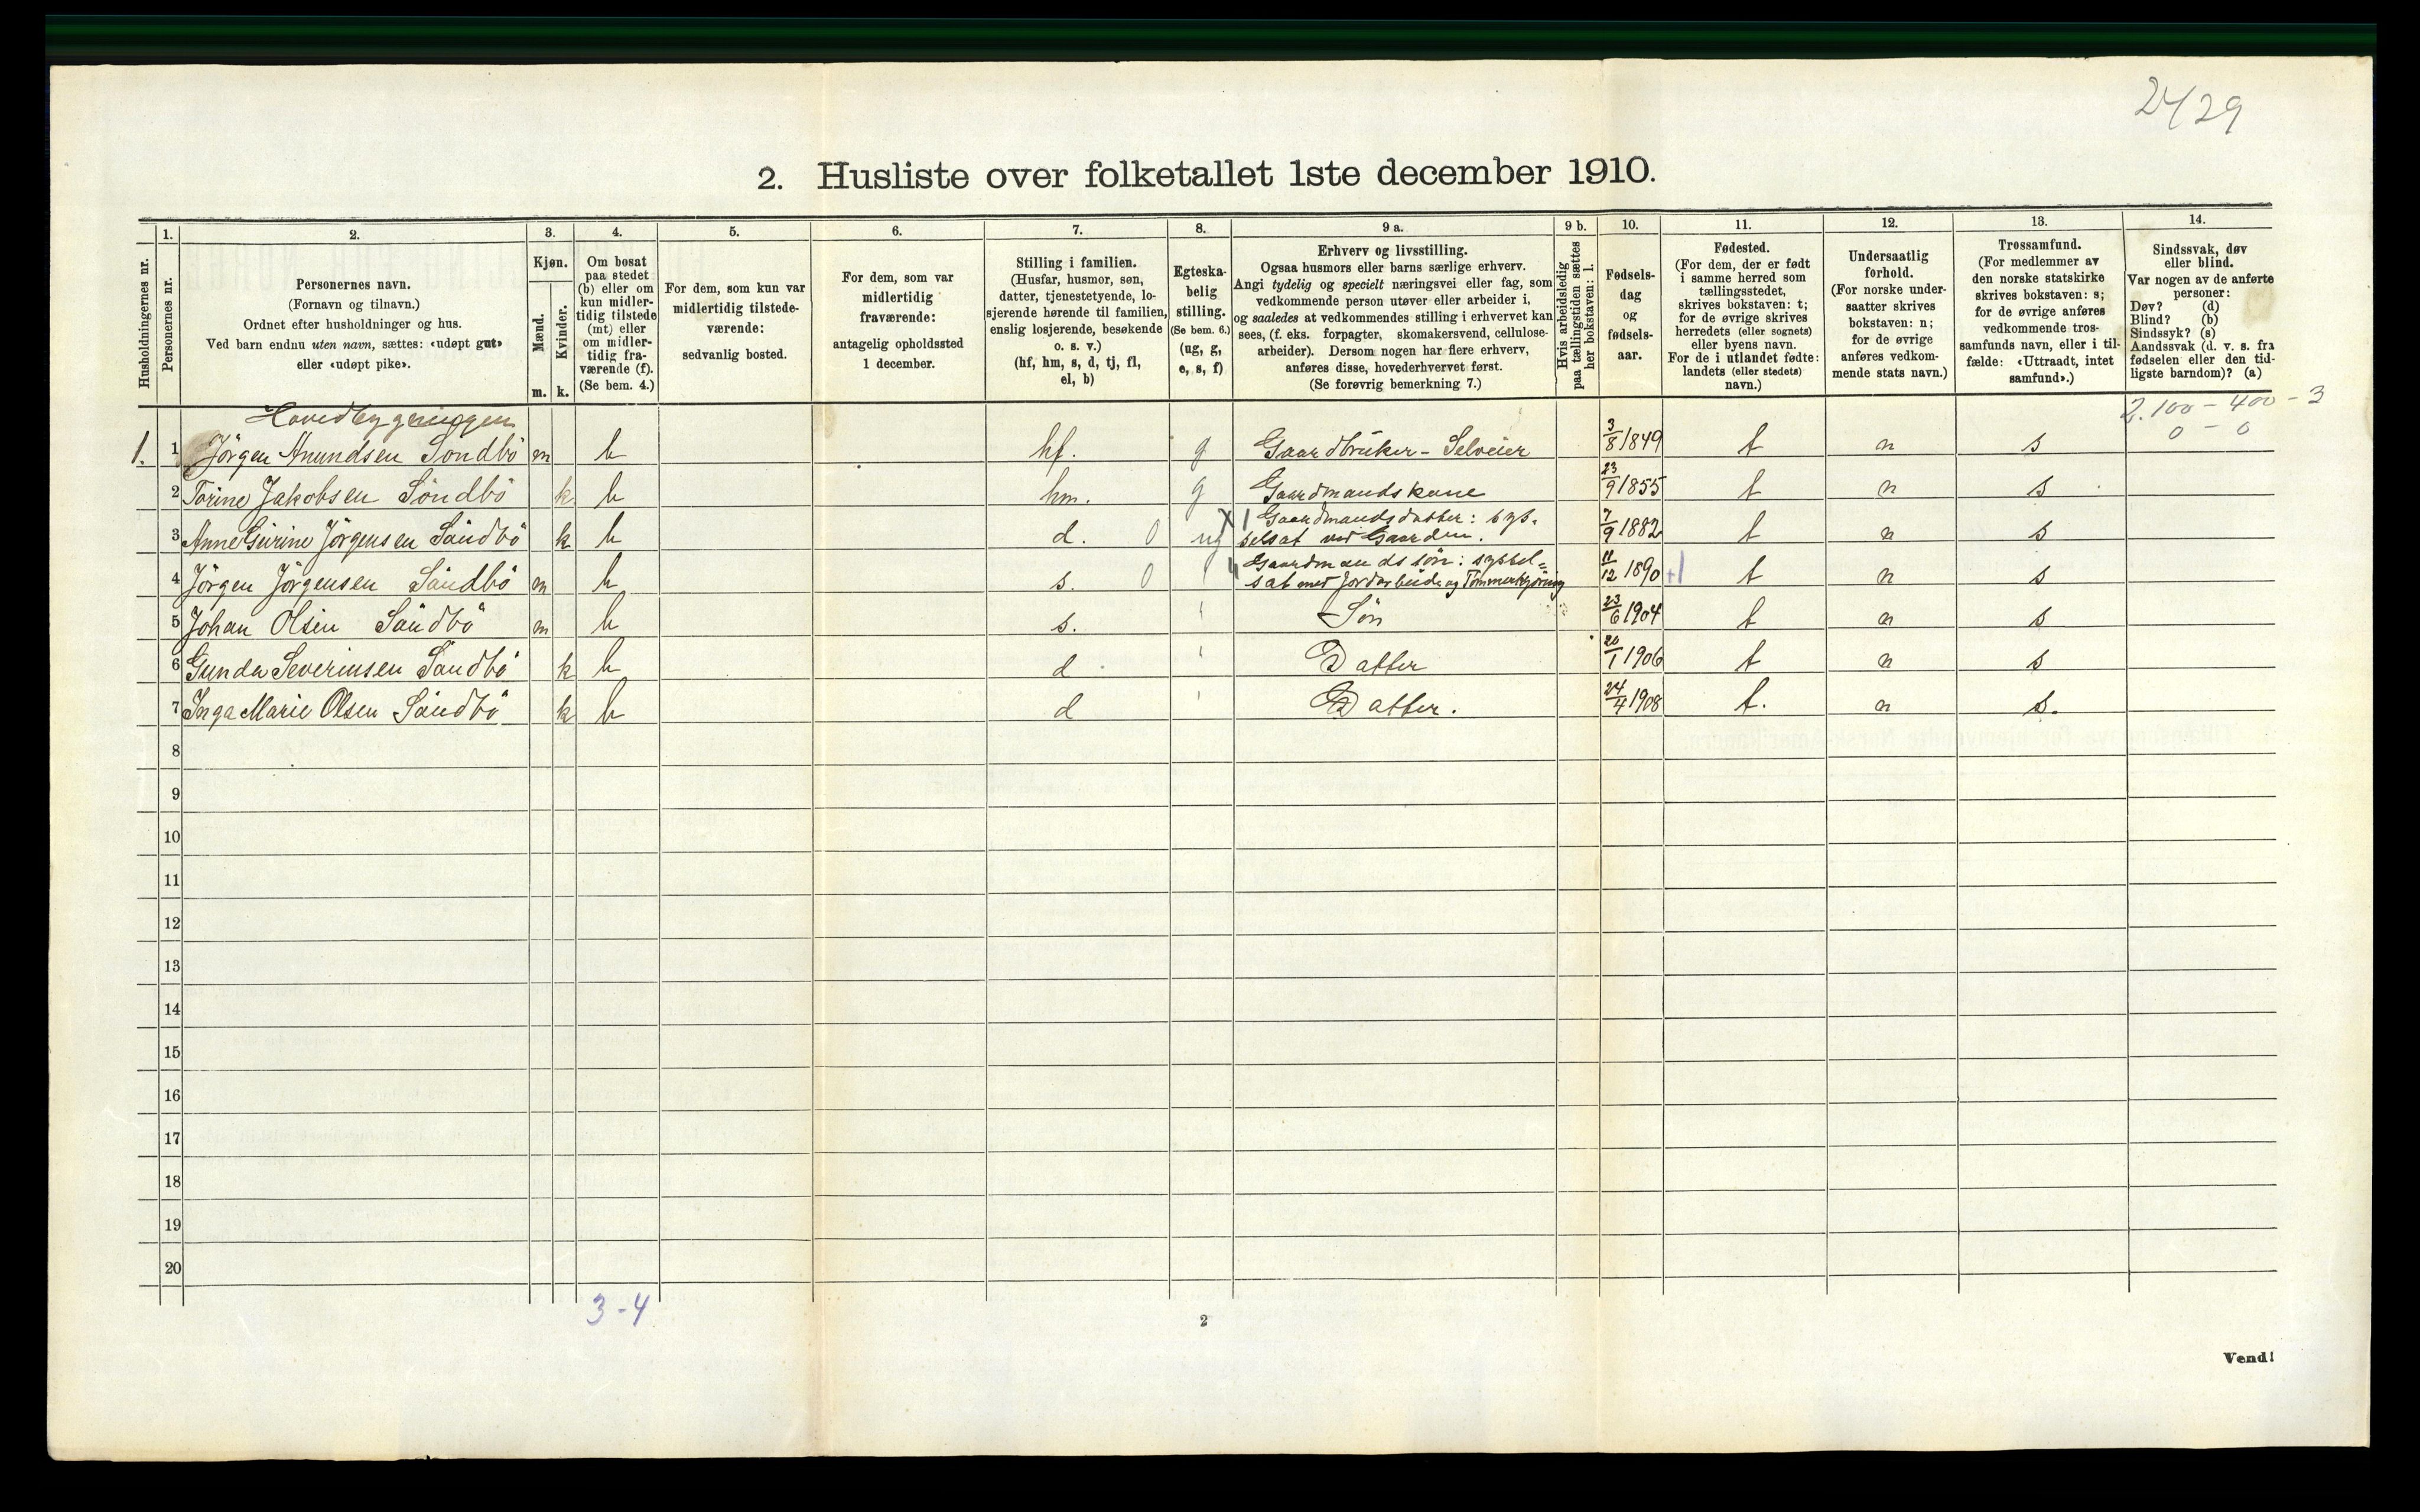 2429
2. Husliste over folketallet 1ste december 1910.
Husholdningernes nr.
1.
Personernes nr.
2.
Personernes navn.
(Fornavn og tilnavn.)
Ordnet efter husholdninger og hus.
Ved barn endnu uten navn, sættes: «udøpt gut»
eller «udøpt pike».
3.
Kjøn.
Mænd.
Kvinder.
m. k.
4.
Om bosat
paa stedet
(b) eller om
kun midler-
tidig tilstede
(mt) eller
om midler-
tidig fra-
værende (f).
(Se bem. 4.)
5.
For dem, som kun var
midlertidig tilstede-
værende:
sedvanlig bosted.
6.
For dem, som var
midlertidig
fraværende:
antagelig opholdssted
1 december.
7.
Stilling i familien.
(Husfar, husmor, søn,
datter, tjenestetyende, lo-
sjerende hørende til familien,
enslig losjerende, besøkende
o. s. v.)
(hf, hm, s, d, tj, fl,
el, b)
8.
Egteska-
belig
stilling.
(Se bem. 6.)
(ug, g,
e, s, f)
9 a.
Erhverv og livsstilling.
Ogsaa husmors eller barns særlige erhverv.
Angi tydelig og specielt næringsvei eller fag, som
vedkommende person utøver eller arbeider i,
og saaledes at vedkommendes stilling i erhvervet kan
sees, (f. eks. forpagter, skomakersvend, cellulose-
arbeider). Dersom nogen har flere erhverv,
anføres disse, hovederhvervet først.
(Se forøvrig bemerkning 7.)
9 b.
Hvis arbeidsledig
paa tællingstiden sættes
her bokstaven: l.
10.
Fødsels-
dag
og
fødsels-
aar.
11.
Fødested.
(For dem, der er født
i samme herred som
tællingsstedet,
skrives bokstaven: t;
for de øvrige skrives
herredets (eller sognets)
eller byens navn.
For de i utlandet fødte:
landets (eller stedets)
navn.)
12.
Undersaatlig
forhold.
(For norske under-
saatter skrives
bokstaven: n;
for de øvrige
anføres vedkom-
mende stats navn.)
13.
Trossamfund.
(For medlemmer av
den norske statskirke
skrives bokstaven: s;
for de øvrige anføres
vedkommende tros-
samfunds navn, eller i til-
fælde: «Uttraadt, intet
samfund».)
14.
Sindssvak, døv
eller blind.
Var nogen av de anførte
personer:
Døv? (d)
Blind? (b)
Sindssyk? (s)
Aandssvak (d. v. s. fra
fødselen eller den tid-
ligste barndom)? (a)
2.100 - 400 - 3
0 - 0
Hovedbygningen
1. 1 Jörgen Anundsen Söndbö m b hf. g Gaardbruker - Selveier 3/8 1849 t n s
2 Torine Jakobsen Söndbö k b hm. g Gaardmandskone 23/9 1855 t n s
3 Anne Gurine Jörgensen Sandbö k b d. 0 ug Gaardmandsdatter: sys-
selsat ved Gaarden. 7/9 1882 t n s
4 Jörgen Jörgensen Sandbö m b s. 0 Gaardmands sön: syssel=
sat met Jordarbeide og Tömmerkjöring 11/12 1890 t n s
5 Johan Olsen Sandbö m b s. Sön 23/6 1904 t n s
6 Gunda Severinsen Sandbö k b d Datter 20/1 1906 t n s
7 Inga Marie Olsen Sandbö k b d Datter. 24/4 1908 t. n s.
8
9
10
11
12
13
14
15
16
17
18
19
20
3-4
2
Vend!